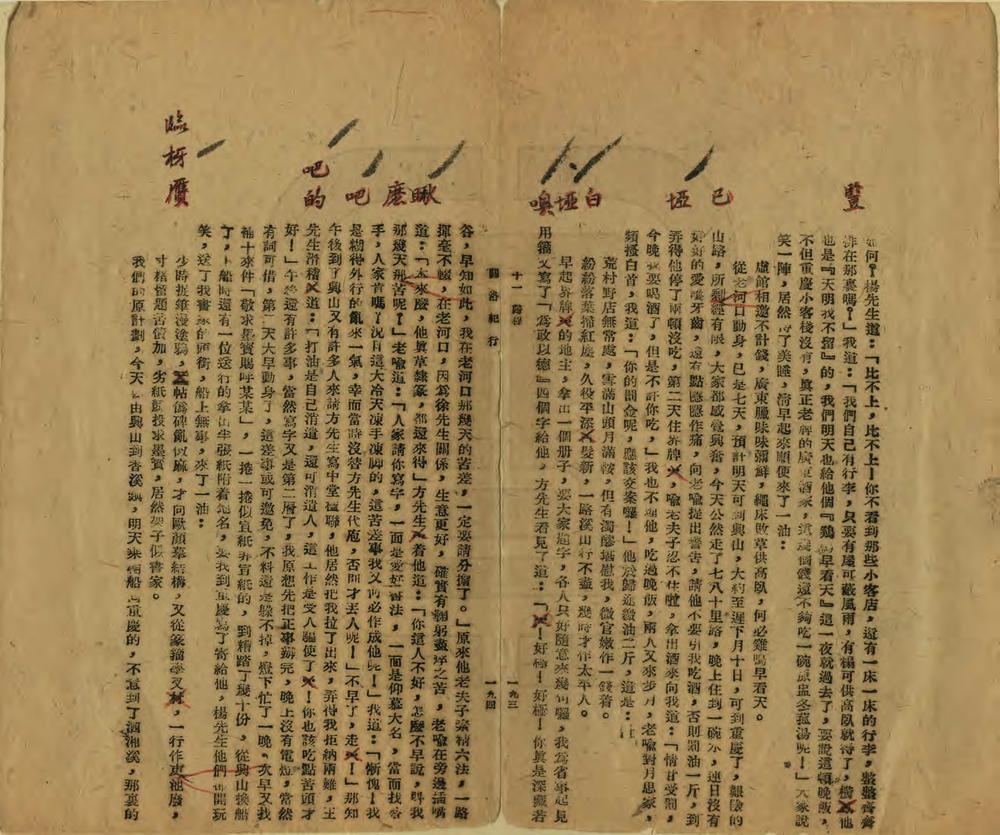 豎
已
埡
白埡嗅
瞅
麽
吧
吧的
臨枬贋
如何？楊先生道：「比不上，比不上！你不看到那些小客店，還有一床一床的行李，整整齊齊
排在那裏嗎？」我道：「我們自己有行李，只要有屋可蔽風雨，有楊可供高臥就得了，橫他
也是『天明我不留』的，我們明天也給他個『鷄鳴早看天』這一夜就過去了，要說這頓晚飯，
不但重慶小客棧沒有，眞正老牌的廣東酒家，這幾個錢還不夠吃一碗原盅冬菰湯呢！」大家說
笑一陣，居然得了美睡，清早起來順便來了一油：
虛館相邀不計錢，廣東臘味味彌鮮，繩床敗草供高臥，何必雞鳴早看天。
從老河口動身，已是七天，預計明天可到興山，大約至遲下月十日，可到重慶了，艱險的
山路，所經有限，大家都感覺興奮，今天公然走了七八十里路，晚上住到一碗水，連日沒有
好好的愛護牙齒，還有點隱隱作痛，向老喩提出警告，請他不要引我吃酒，否則罰油一斤，到
弄得他停了兩頓沒吃，第二天住界牌，喩老夫子忍不住饞，拿出酒來向我道：「情甘受罰，
今晚我要喝酒了，但是不許你吃，」我也不理他，吃過晚飯，兩人又來步月，老喩對月思家，
頻搔白首，我道：「你的罰金呢，應該交案囉！」他於歸途繳油二斤，這是：
荒村野店無常處，雲滿山頭月滿鞍，但有濁醪堪慰我，微官嫩作一錢看。
紛紛落葉掃紅塵，久役平添髮新，一路溪山行不盡，幾時才作太平人。
早起界牌的地主，拿出一個册子，要大家題字，各人只好隨意來幾句囉，我爲省事起見
用鷄又寫了「爲政以德」四個字給他，方先生看見了道：「！好極！好極！你眞是深藏若
十一 歸程
一九三
關洛紀行
一九四
谷，早知如此，我在老河口那幾天的苦差，一定要請分擔了。」原來他老夫子素精六法，一路
揮毫不輟，在老河口，因爲徐先生關係，生意更好，確實有鞠躬盡瘁之苦，老喩在旁邊插嘴
道：「本來麽，他眞草隸篆，都還來得」方先生着他道：「你這人不好，怎麽不早說，呌我
那幾天那苦呢？」老喩道：「人家請你寫字，一面是愛好書法，一面是仰慕大名，當面找名
手，人家肯嗎？況且這大冷天凍手凍脚的，這苦差事我又何必作成他呢！」我道：「慚愧！我
是糊得外行的亂來一氣，幸而當時沒替方先生代庖，否則才丟人呢！」不早了，走！」那知
午後到了興山又有許多人來請方先生寫中堂楹聯，他居然把我拉了出來，弄得我拒納兩難，王
先生滑稽道：「打油是自己消遣，還可消遣人，這工作是受人驅使了！你也該吃點苦頭才
好！」午後還有許多事，當然寫字又是第二層了，我原想先把正事辦完，晚上沒有電燈，當然
有詞可借，第二天大早動身了，這差事或可邀免，不料還是躲不掉，燈下忙了一晚，次早又找
補十來件「敬求墨寶賜呼某某」，一捲一捲似宣紙非宣紙的，到糟踏了幾十份，從興山換船
了，上船時還有一位送行的拿出半張紙附着地名，要我到重慶寫了寄給他，楊先生他們都開玩
笑，送了我書家的頭銜，船上無事，來了一油：
少時握筆漫塗鴉，帖僞碑亂似麻，才向歐顏摹結構，又從篆籀學叉，一行作吏池廢，
寸楮留題苦債加，劣紙頻投求墨寶，居然架子似書家。
我們的原計劃，今天由興山到香溪，明天乘輪船上重慶的，不意到了泗湘溪，那裏的